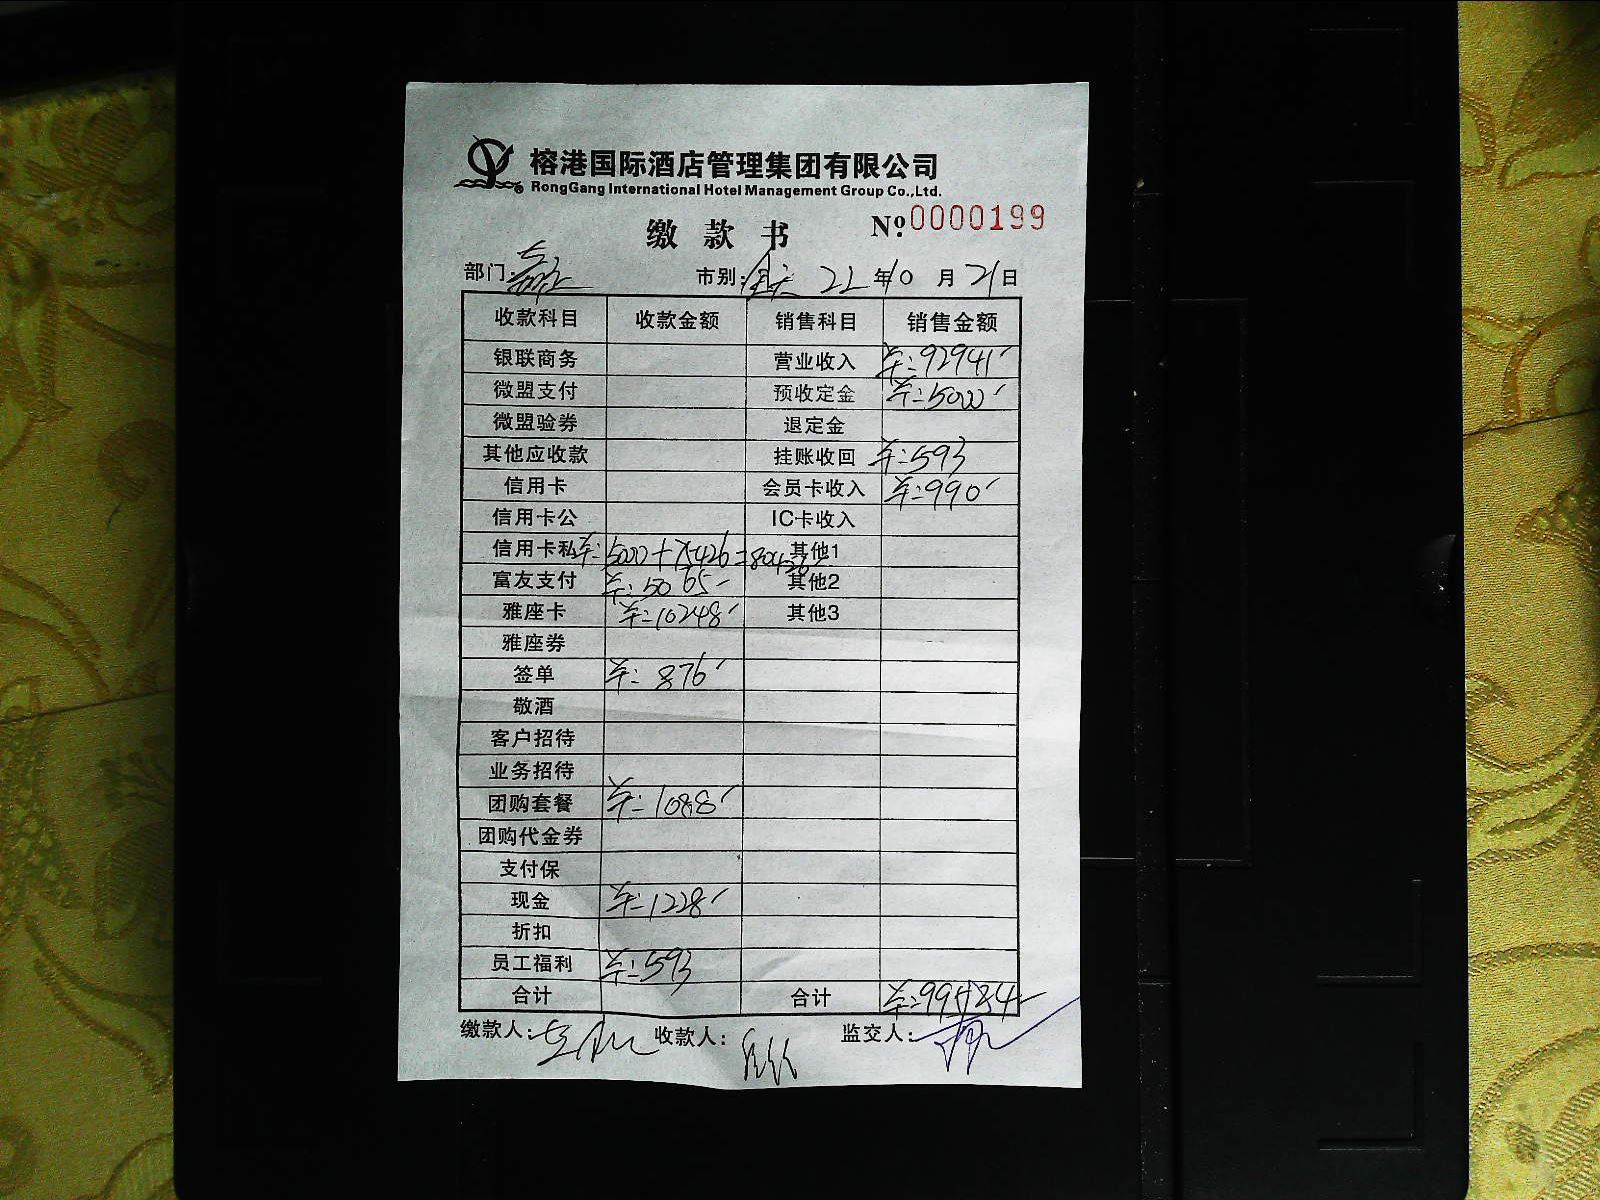 榕港国际酒店管理集团有限公司
RongGang International Hotel Management Group Co.,Ltd.
缴款书 №0000199
部门: 市别: 全天 22年10月21日
收款科目 收款金额 销售科目 销售金额
银联商务 营业收入 ¥:92941
微盟支付 预收定金 ¥:5000
微盟验券 退定金
其他应收款 挂账收回 ¥:593
信用卡 会员卡收入 ¥:990
信用卡公 IC卡收入
信用卡私 ¥:5000+75426=80426 其他1
富友支付 ¥:5065 其他2
雅座卡 ¥:10248 其他3
雅座券
签单 ¥:876
敬酒
客户招待
业务招待
团购套餐 ¥:1088
团购代金券
支付保
现金 ¥:1228
折扣
员工福利 ¥:593
合计 合计 ¥:99524
缴款人: 收款人: 监交人: